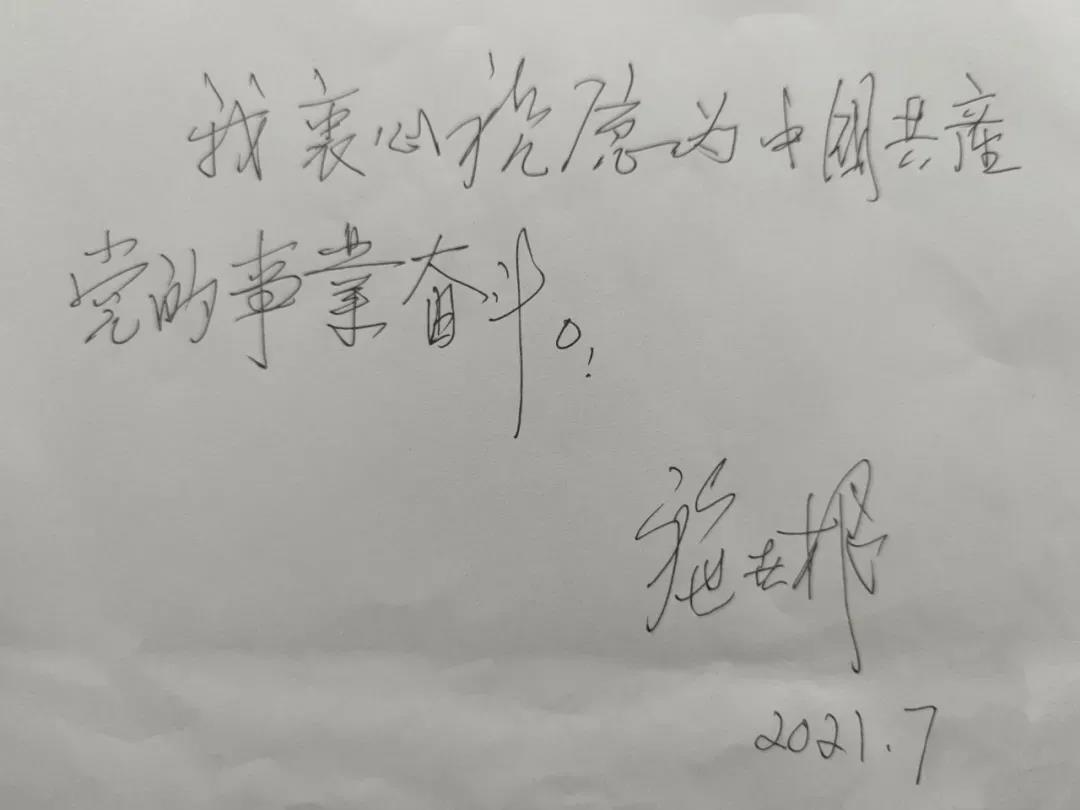 我衷心祝愿为中國共產
党的事業奋斗。!
施世根
2021.7